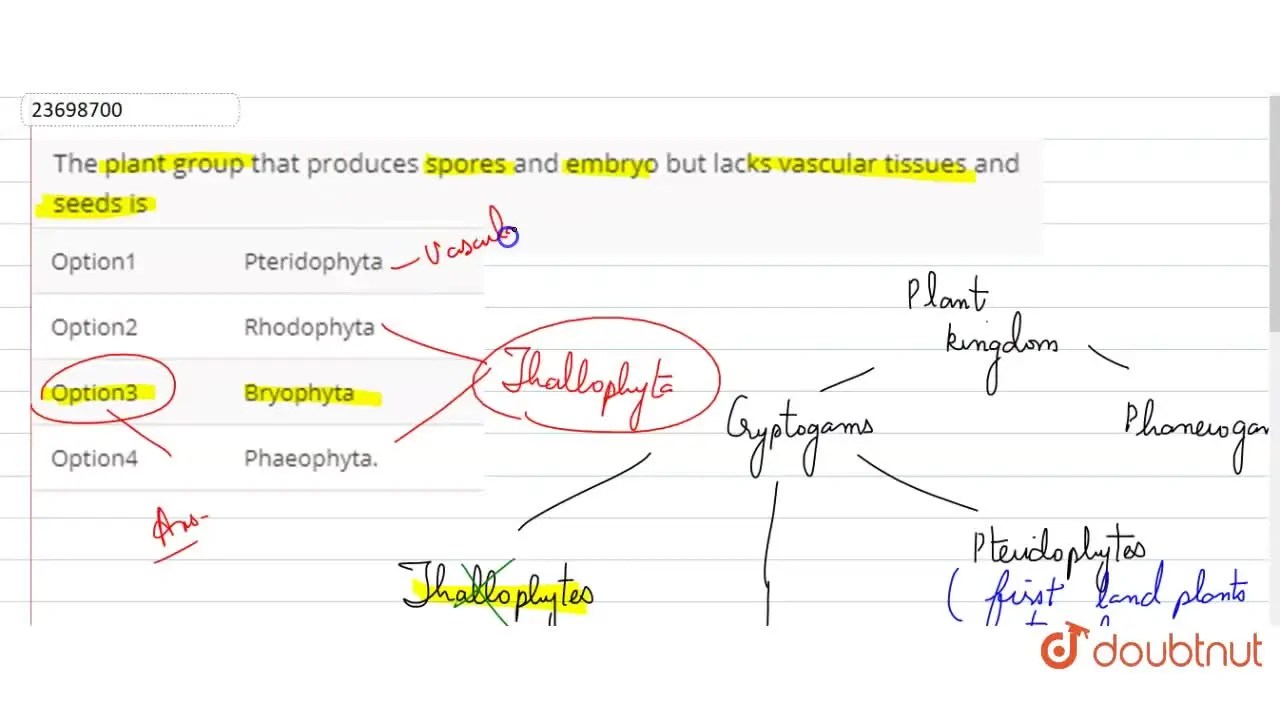 23698700
The plant group that produces spores and embryo but lacks vascular tissues and
seeds is
Option1 Pteridophyta
Option2 Rhodophyta
Option3 Bryophyta
Option4 Phaeophyta.
Ans
Thallophyta
Plant
kingdom
Cryptogams
Phanerogam
Thallophytes
Pteridophytes
( first land plants
doubtnut